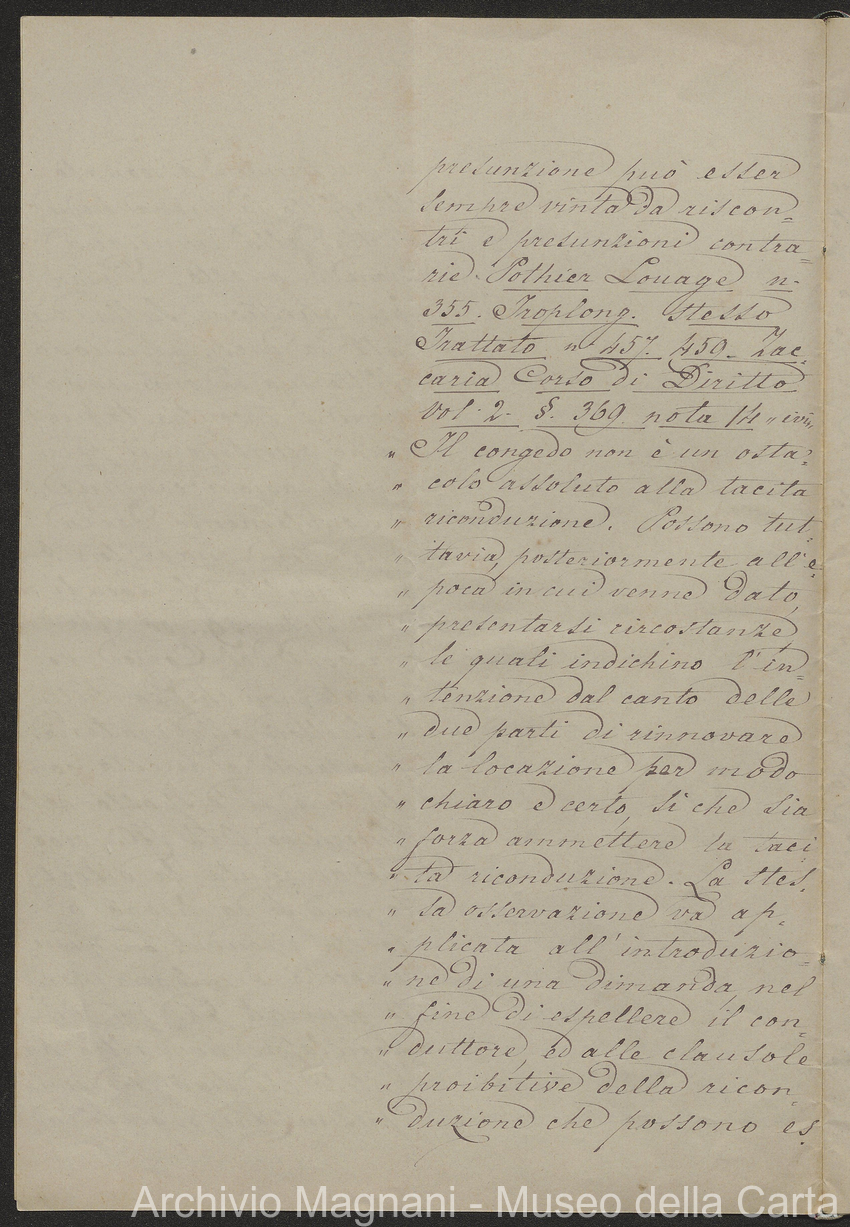 presunzione può esser
sempre vinta da riscon=
tri e presunzioni contra=
rie. Pothier Louage n.
355. Troplong. stesso
Trattato n.° 457. 459. Zac=
caria Corso di Diritto
vol. 2. §. 369. nota 14 " ivi "
" Il congedo non è un osta=
" colo assoluto alla tacita
" riconduzione. Possono tut=
" tavia, posteriormente all'e=
" poca in cui venne dato,
" presentarsi circostanze,
" le quali indichino l'in=
" tenzione dal canto delle
" due parti di rinnovare
" la locazione per modo
" chiaro e certo, sì che sia
" forza ammettere la taci=
" ta riconduzione. La stes=
" sa osservazione va ap=
" plicata all'introduzio=
" ne di una dimanda, nel
" fine di espellere il con=
" duttore, ed alle clausole
" proibitive della ricon=
" duzione che possono es=
Archivio Magnani - Museo della Carta